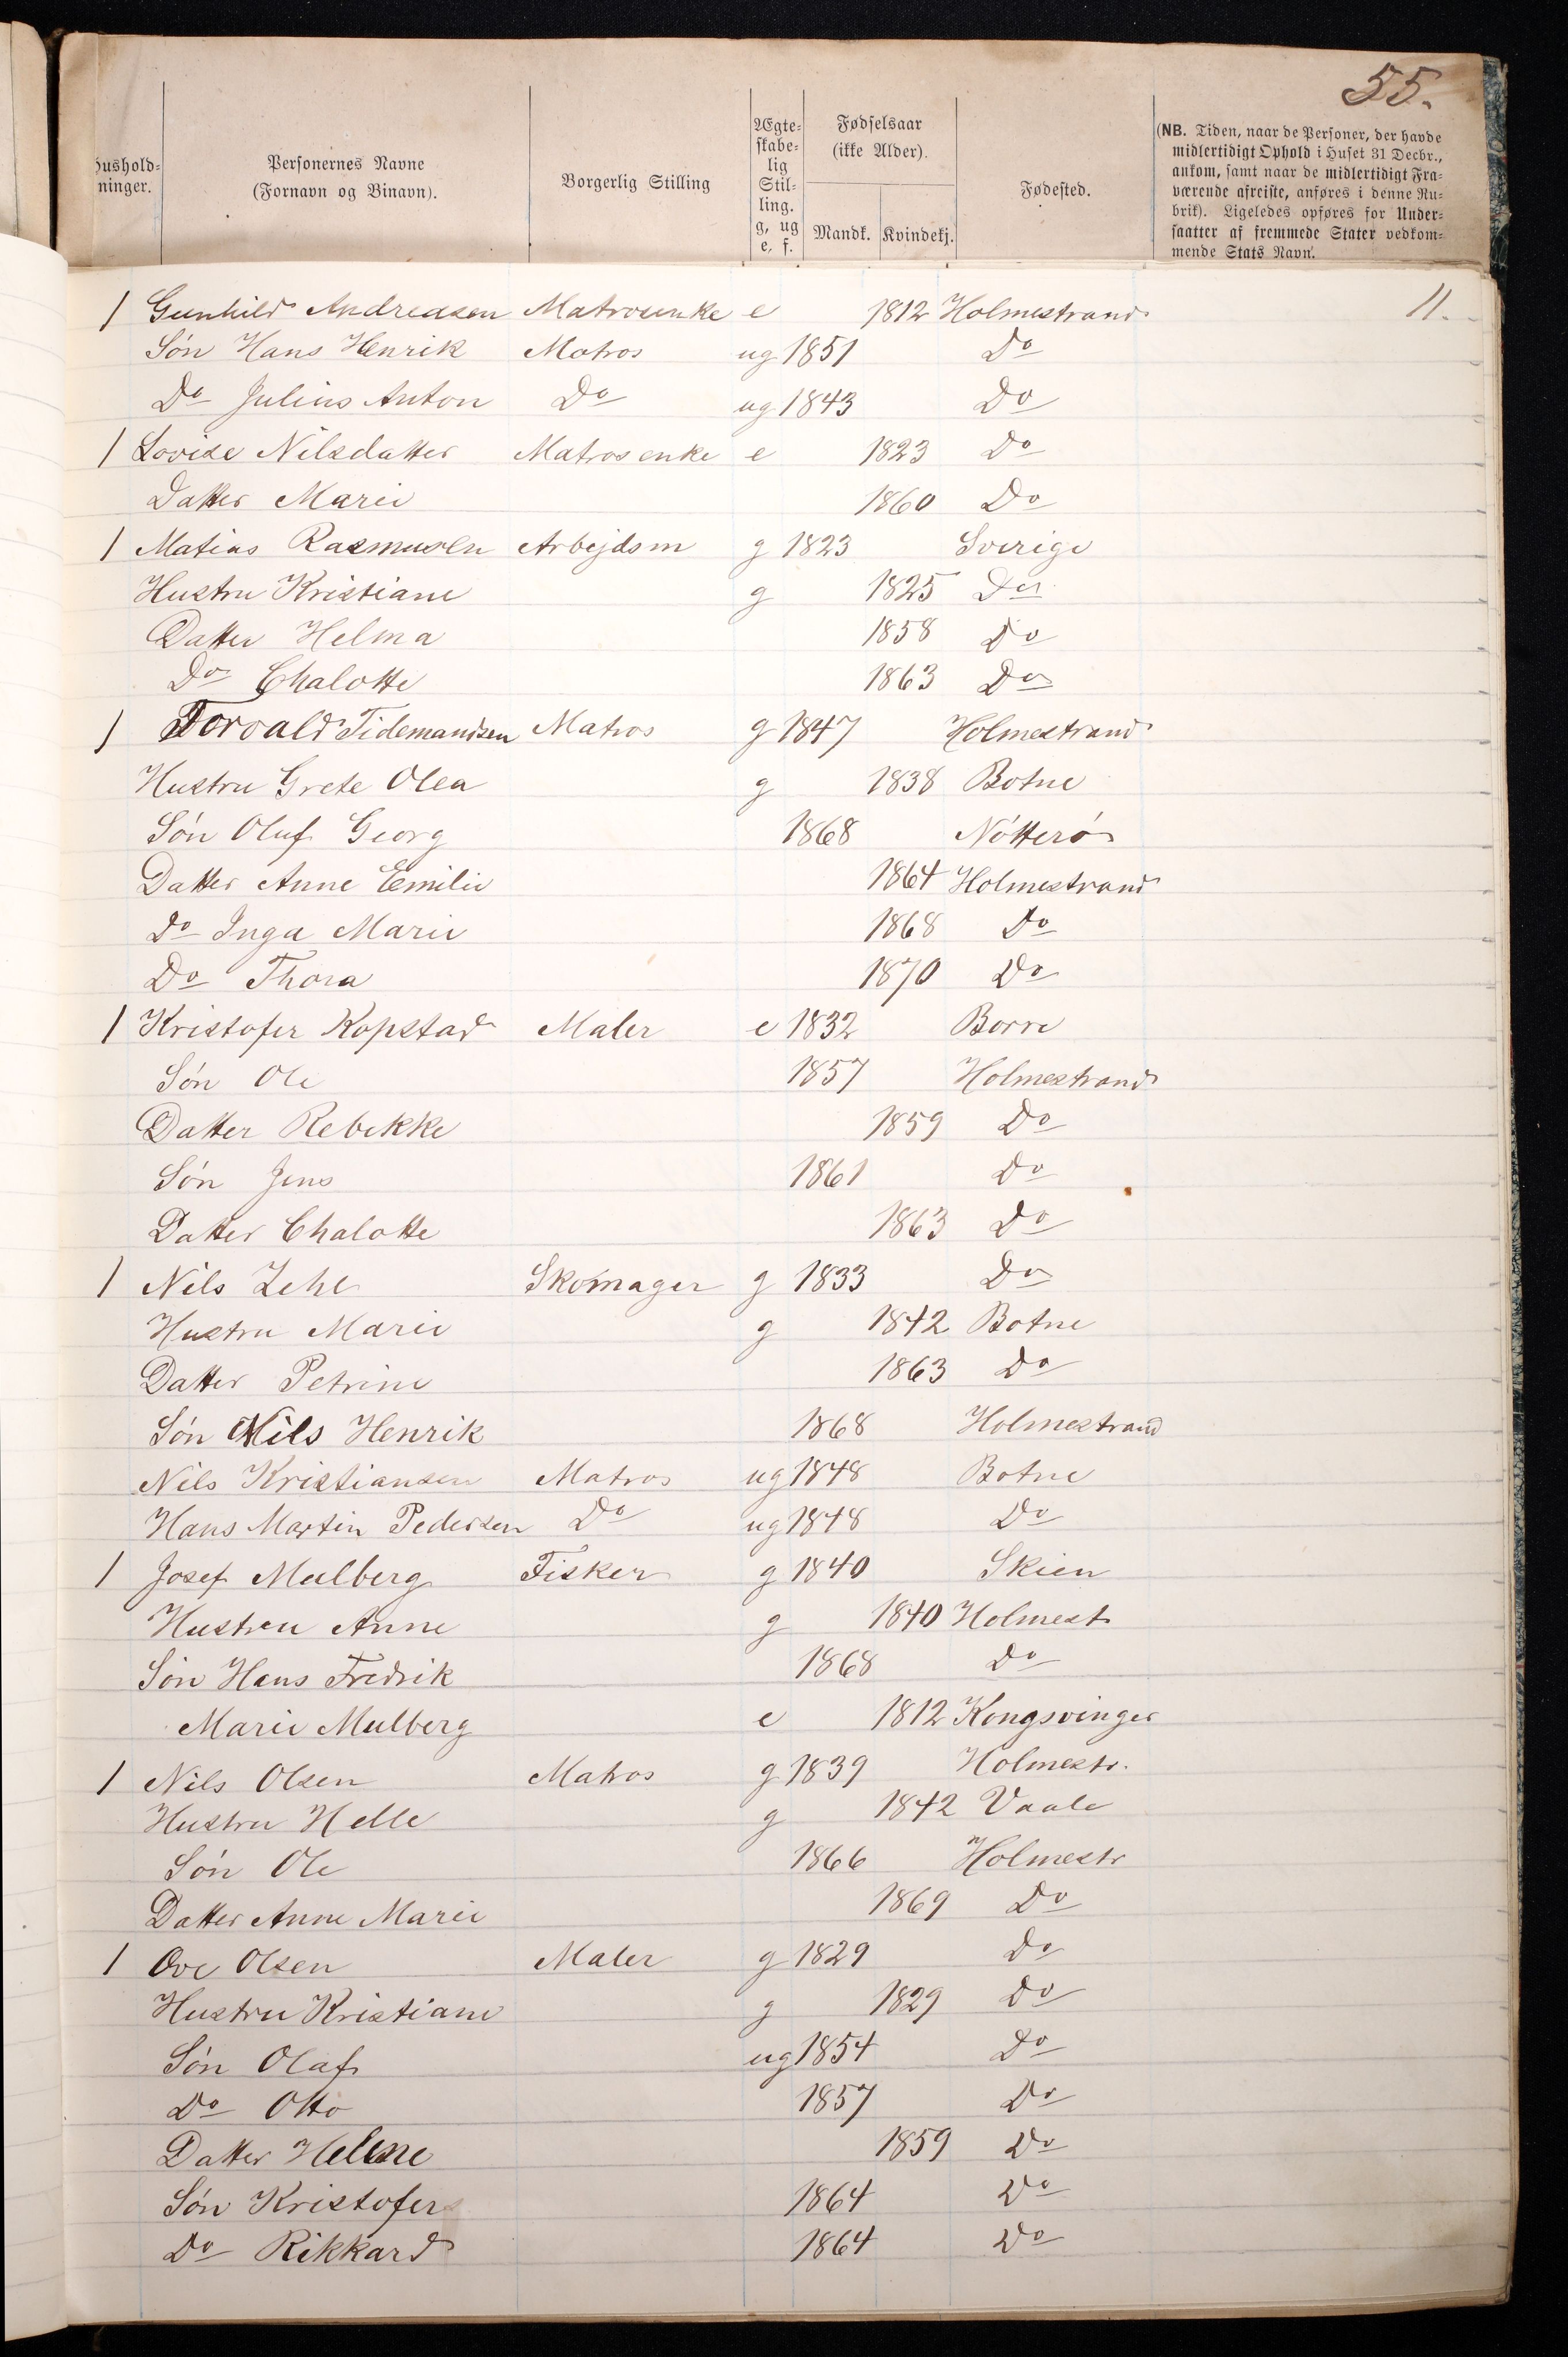 55.
Hushold-
ninger.
Personernes Navne
(Fornavn og Binavn).
Borgerlig Stilling
Ægte-
skabe-
lig
Stil-
ling.
g, ug
e, f.
Fødselsaar
(ikke Alder).
Mandk. Kvindekj.
Fødested.
(NB. Tiden, naar de Personer, der havde
midlertidigt Ophold i Huset 31 Decbr.,
ankom, samt naar de midlertidigt Fra-
værende afreiste, anføres i denne Ru-
brik). Ligeledes opføres for Under-
saatter af fremmede Stater vedkom-
mende Stats Navn.
1 Gunhild Andreasen Matrosenke e 1812 Holmestrand 11.
Søn Hans Henrik Matros ug 1851 Do
Do Julius Anton Do ug 1843 Do
1 Lovise Nilsdatter Matrosenke e 1823 Do
Datter Marie 1860 Do
1 Matias Rasmusen Arbejdsm g 1823 Sverige
Hustru Kristiane g 1825 Do
Datter Helma 1858 Do
Do Chalotte 1863 Do
1 Torvald Tidemandsen Matros g 1847 Holmestrand
Hustru Grete Olea g 1838 Botne
Søn Oluf Georg 1868 Nøtterø
Datter Anne Emilie 1864 Holmestrand
Do Inga Marie 1868 Do
Do Thora 1870 Do
1 Kristofer Kopstad Maler e 1832 Borre
Søn Ole 1857 Holmestrand
Datter Rebekke 1859 Do
Søn Jens 1861 Do
Datter Chalotte 1863 Do
1 Nils Zehl Skomager g 1833 Do
Hustru Marie g 1842 Botne
Datter Petrine 1863 Do
Søn Nils Henrik 1868 Holmestrand
Nils Kristiansen Matros ug 1848 Botne
Hans Martin Pedersen Do ug 1848 Do
1 Josef Mulberg Fisker g 1840 Skien
Hustru Anne g 1840 Holmest
Søn Hans Fredrik 1868 Do
Marie Mulberg e 1812 Kongsvinger
1 Nils Olsen Matros g 1839 Holmestr.
Hustru Helle g 1842 Vaale
Søn Ole 1866 Holmestr
Datter Anne Marie 1869 Do
1 Ove Olsen Maler g 1829 Do
Hustru Kristiane g 1829 Do
Søn Olaf ug 1854 Do
Do Otto 1857 Do
Datter Helene 1859 Do
Søn Kristofer 1864 Do
Do Rikkard 1864 Do